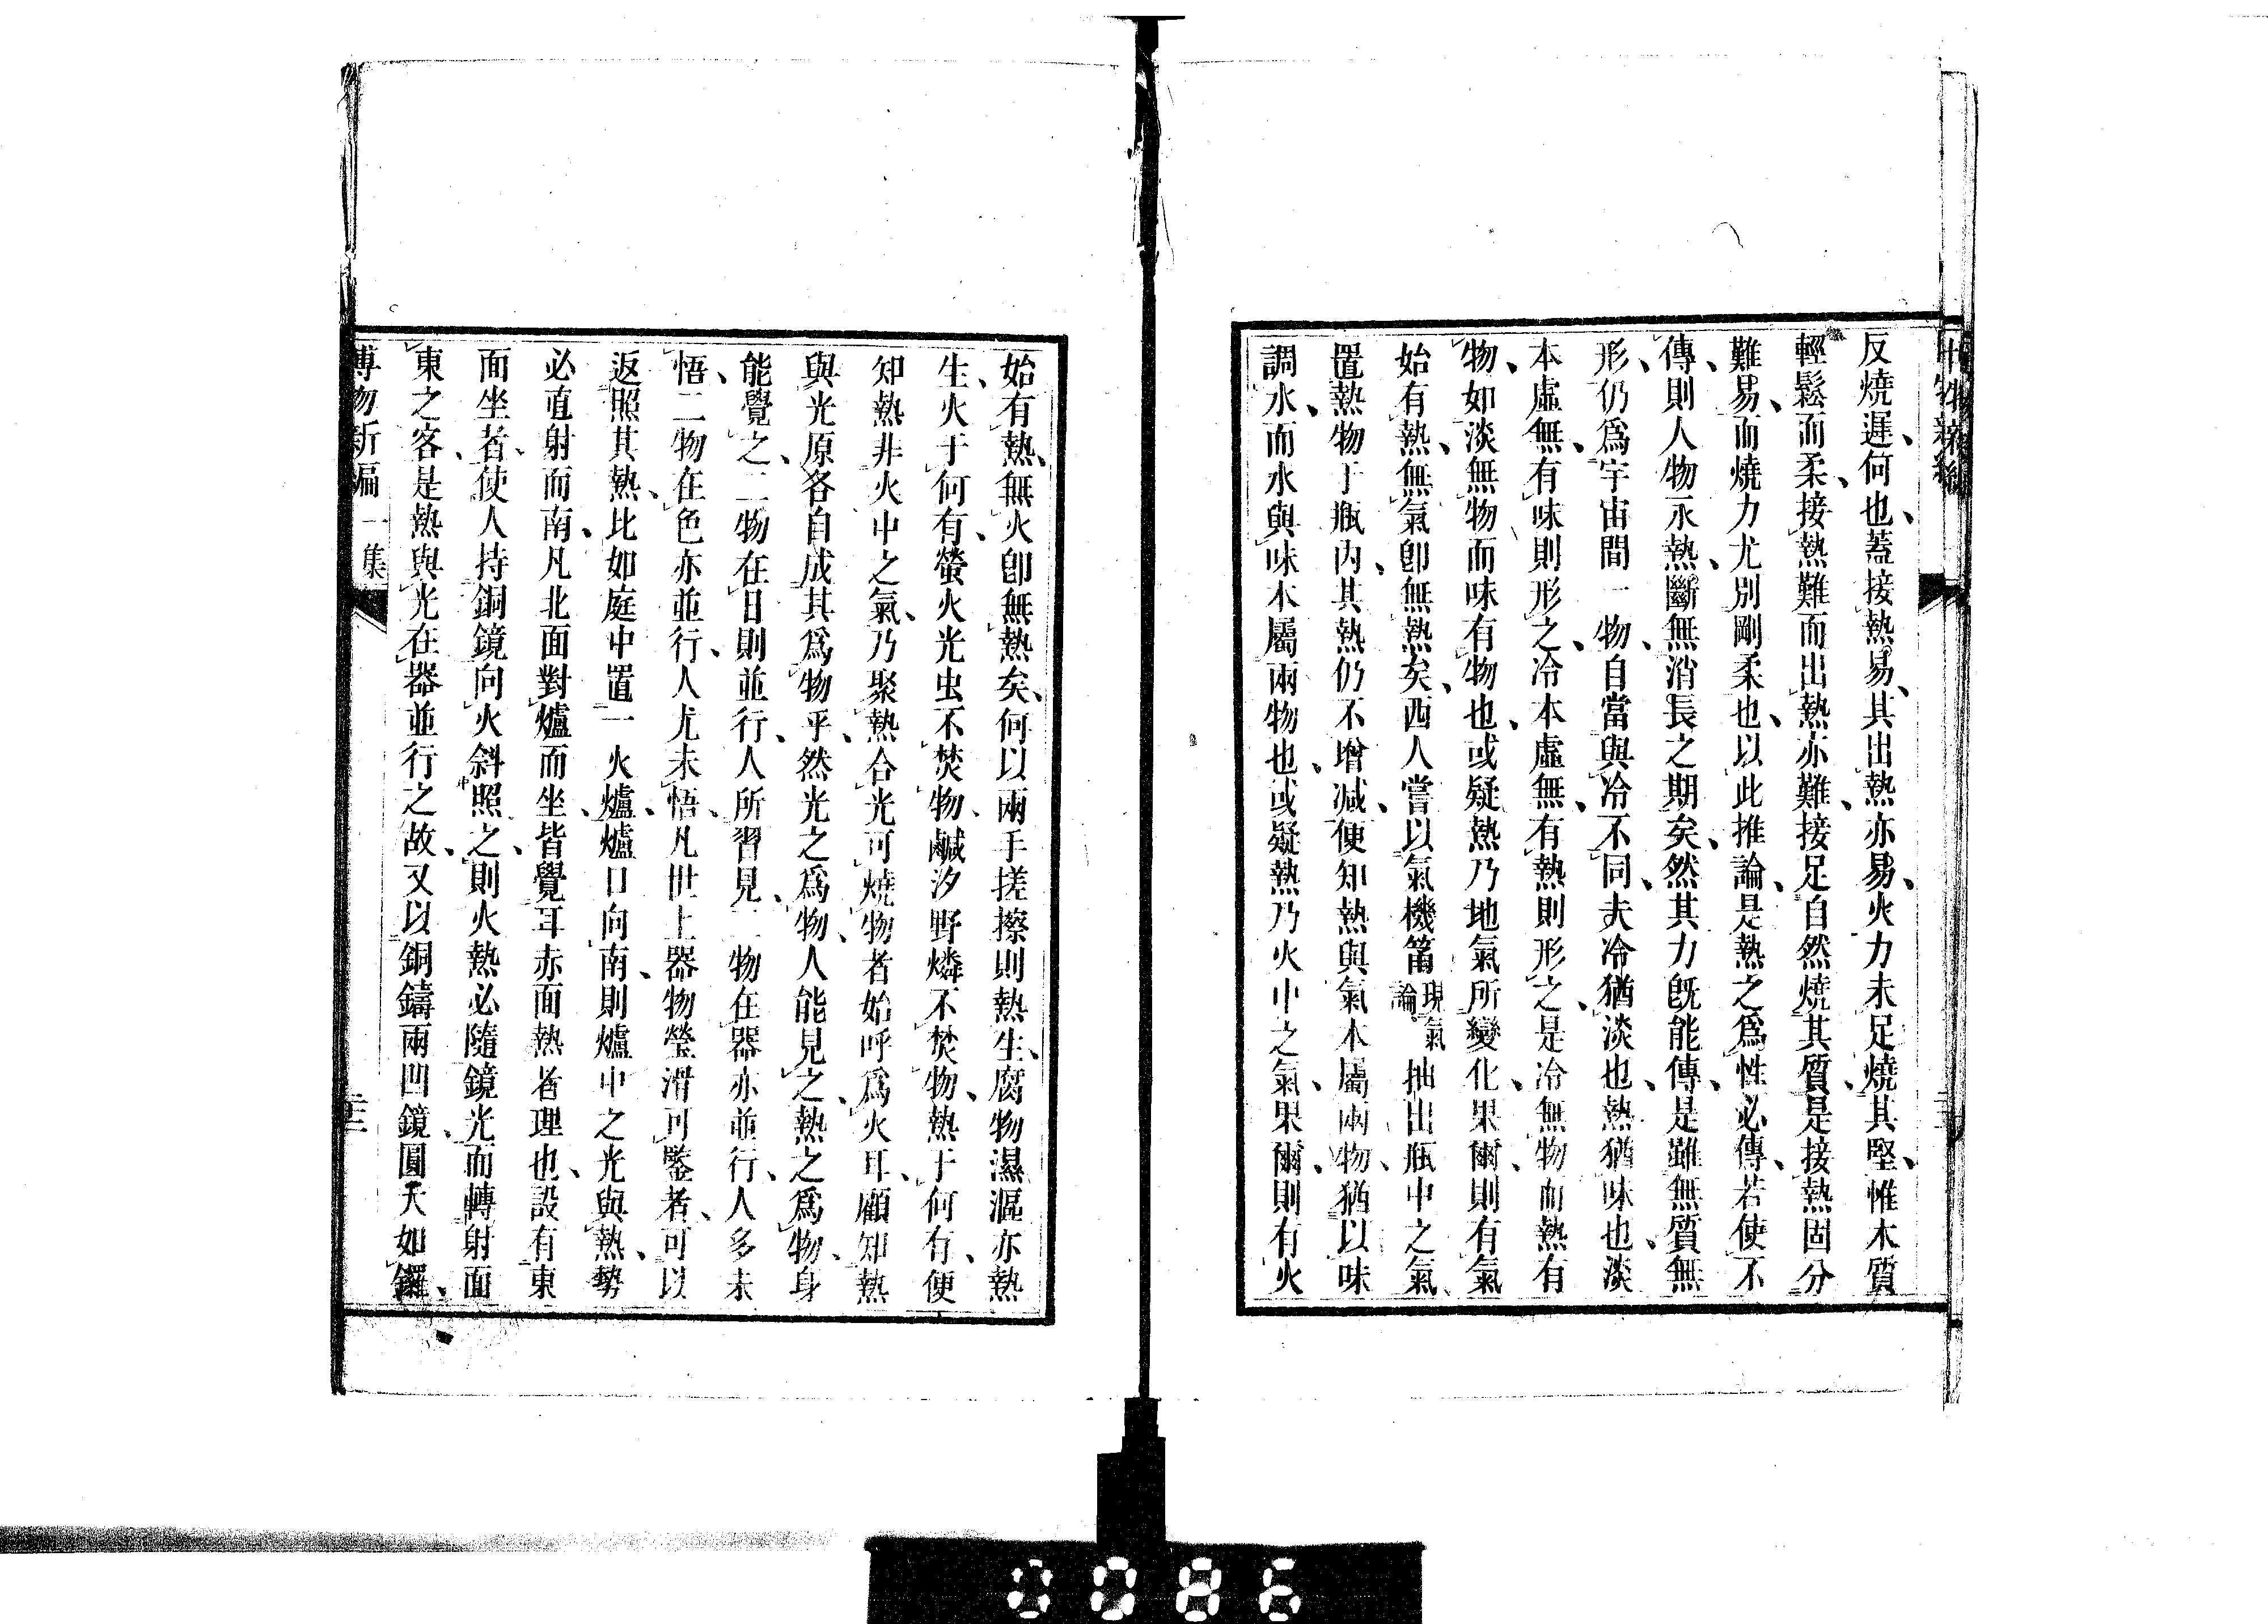 反燒遲、何也、蓋接熱易、其出熱亦易、火力未足燒其堅、惟木質
輕鬆而柔、接熱難而出熱亦難、接足自然燒其質、是接熱固分
難易、而燒力尤別剛柔也、以此推論、是熱之爲性必傳、若使不
傳、則人物永熱、斷無消長之期矣、然其力旣能傳、是雖無質無
形、仍爲宇宙間一物、自當與冷不同、夫冷猶淡也、熱猶味也、淡
本虛無、有味則形之、冷本虛無、有熱則形之、是冷無物而熱有
物、如淡無物而味有物也、或疑熱乃地氣所變化、果爾、則有氣
始有熱、無氣卽無熱矣、西人嘗以氣機筩現氣論。抽出瓶中之氣、
置熱物于瓶內、其熱仍不增減、便知熱與氣本屬兩物、猶以味
調水、而水與味本屬兩物也、或疑熱乃火中之氣、果爾、則有火
始有熱、無火卽無熱矣、何以兩手搓擦則熱生、腐物濕漚亦熱
生、火于何有、螢火光虫不焚物、鹹汐野燐不焚物、熱于何有、便
知熱非火中之氣、乃聚熱合光可燒物者始呼爲火耳、顧知熱
與光原各自成其爲物乎、然光之爲物、人能見之、熱之爲物、身
能覺之、二物在日則並行、人所習見、二物在器亦並行、人多未
悟、二物在色亦並行、人尤未悟、凡世上器物瑩滑可鑒者、可以
返照其熱、比如庭中置一火爐、爐口向南、則爐中之光與熱、勢
必直射而南、凡北面對爐而坐、皆覺耳赤面熱者理也、設有東
面坐者、使人持銅鏡向火斜照之、則火熱必隨鏡光而轉射面
東之客、是熱與光在器並行之故、又以銅鑄兩凹鏡、圓大如鑼、
博物新編 一集